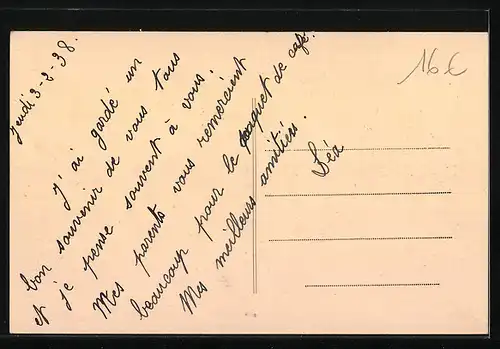 Jeudi 3-2-38.
J'ai gardé un
bon souvenir de vous tous
et je pense souvent à vous.
Mes parents vous remercient
beaucoup pour le paquet de café.
Mes meilleurs amitiés.
Léa
16 €